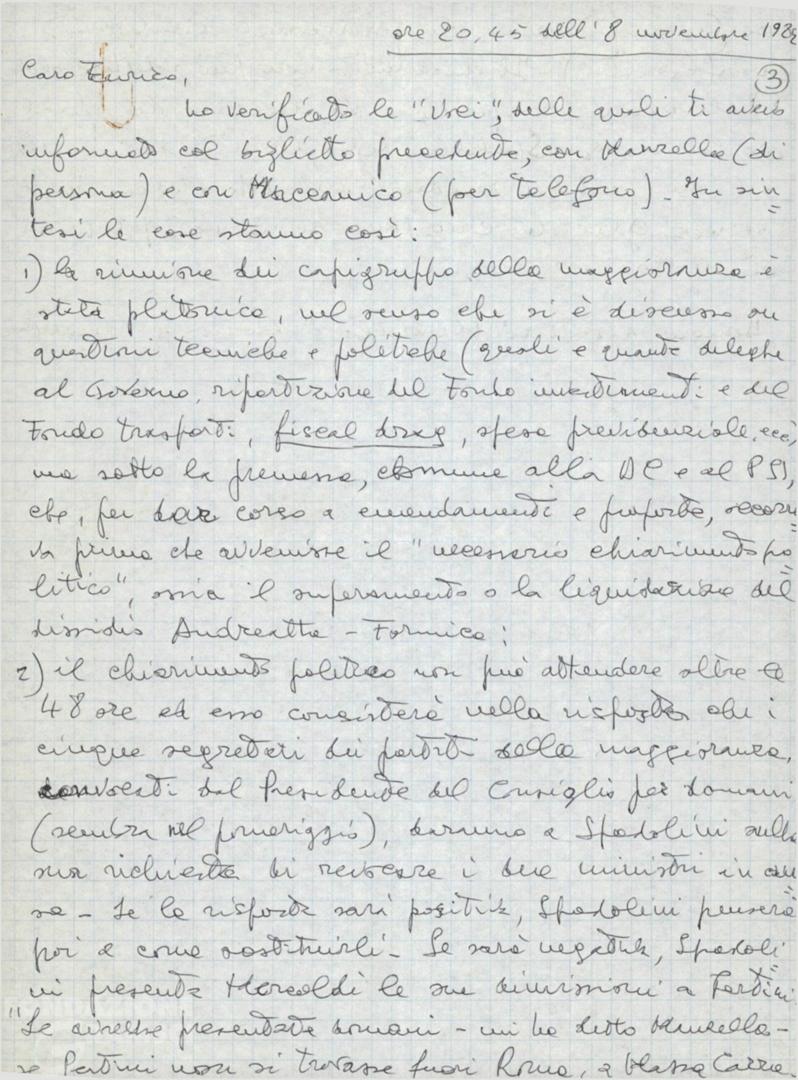 ore 20,45 dell'8 novembre 198
3
Caro Enrico,
ho verificato le "voci", delle quali ti avevo
informato col biglietto precedente, con Manzella (di
persona) e con Maccanico (per telefono). In sin
tesi le cose stanno così:
1) la riunione dei capigruppo della maggioranza è
stata platonica, nel senso che si è discusso su
questioni tecniche e politiche (quali e quante deleghe
al Governo, ripartizione del Fondo investimenti e del
Fondo trasporti, fiscal drag, spesa previdenziale, ecc,
ma sotto la premessa, comune alla DC e al PSI,
che, per dar corso a emendamenti e proposte, occorre
va prima che avvenisse il "necessario chiarimento po
litico", ossia il superamento o la liquidazione del
dissidio Andreatta - Formica;
2) il chiarimento politico non può attendere oltre le
48 ore ed esso consisterà nella risposta che i
cinque segretari dei partiti della maggioranza,
convocati dal Presidente del Consiglio per domani
(sembra nel pomeriggio), daranno a Spadolini sulla
sua richiesta di revocare i due ministri in cau
sa - Se la risposta sarà positiva, Spadolini penserà
poi a come sostituirli - Se sarà negativa, Spadoli
ni presenta Mercoldì le sue dimissioni a Pertini.
"Le avrebbe presentate domani - mi ha detto Manzella -
se Pertini non si trovasse fuori Roma, a Massa Carra.